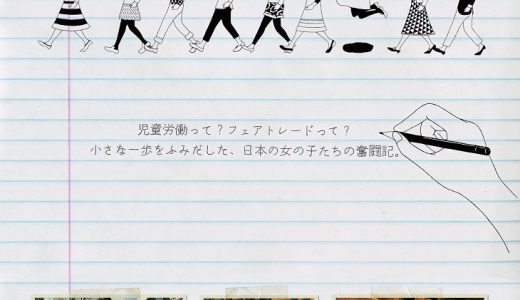 児童労働って？フェアトレードって？
小さな一歩をふみだした、日本の女の子たちの奮闘記。